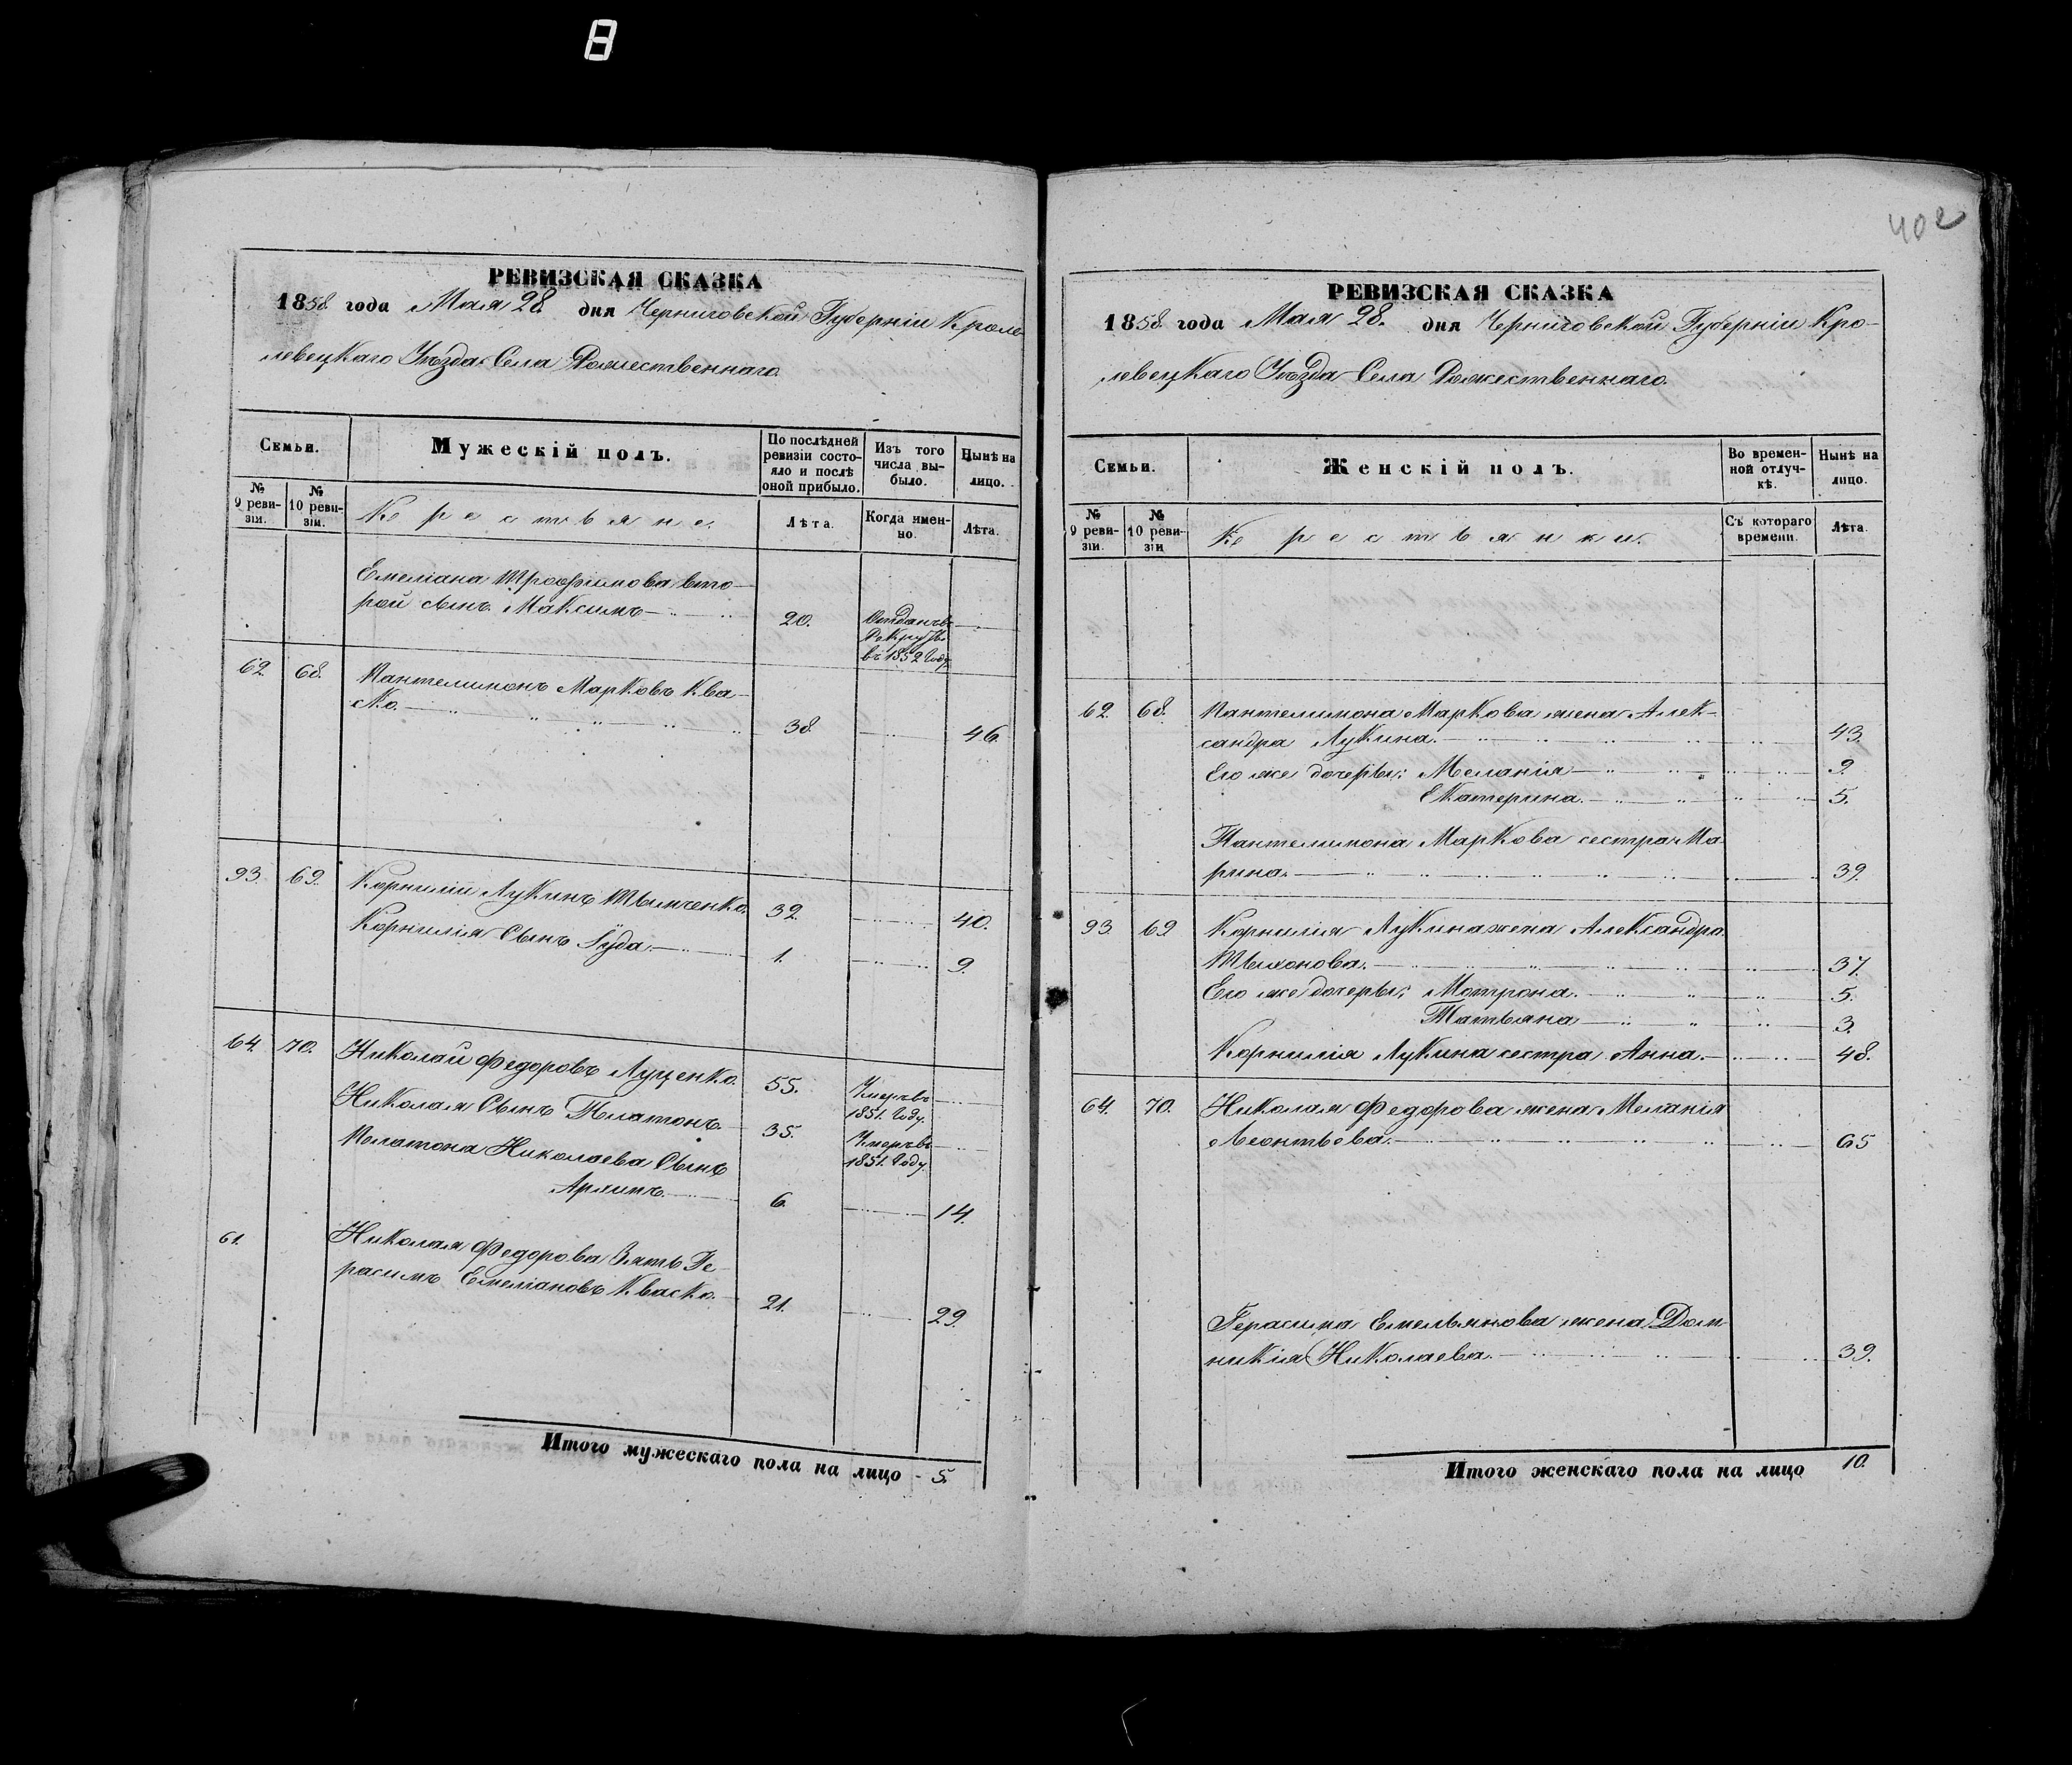 8
402
РЕВИЗСКАЯ СКАЗКА
1858 года Мая 28. дня Черниговской Губерніи Кроле
левецкаго Уѣзда Села Рожественнаго.
Семьи.
Мужескій полъ.
По послѣдней
ревизіи состо-
яло и послѣ
оной прибыло.
Изъ того
числа вы-
было.
Нынѣ на
лицо.
№
9 реви-
зіи.
№
10 реви-
зіи.
Крестьяне.
Лѣта.
Когда имен-
но.
Лѣта.
Емеліана Трофимова вто-
рой сынъ Максимъ 20. Отданъ въ
Рекруты
въ 1852 Году
62. 68. Пантелимонъ Марковъ Ква-
ско. 38. 46.
93. 69. Корнилій Лукинъ Тымченко. 32. 40.
Корнилія Сынъ Іуда. 1. 9.
64. 70. Николай Федоровъ Луценко. 55. Умеръ въ
1851. Году.
Николая Сынъ Платонъ. 35. Умеръ въ
1851. Году.
Платона Николаева Сынъ
Архипъ. 6. 14.
61. Николая Федорова Зять Ге-
расимъ Емеліановъ Кваско. 21. 29
Итого мужескаго пола на лицо - 5.
РЕВИЗСКАЯ СКАЗКА
1858 года Мая 28. дня Черниговской Губерніи Кро-
левецкаго Уѣзда Села Рожественнаго.
Семьи.
Женскій полъ.
Во времен-
ной отлуч-
кѣ.
Нынѣ на
лицо.
№
9 реви-
зіи.
№
10 реви-
зіи
Крестьянки.
Съ котораго
времени.
Лѣта.
62. 68. Пантелимона Маркова жена Алек-
сандра Лукина. 43.
Его же дочеры: Меланія 9.
Екатерина. 5.
Пантелимона Маркова сестра Ма
рина. 39.
93. 69 Корнилія Лукина жена Александра
Тыхонова. 37.
Его же дочеры: Мотрона. 5.
Татьяна 3.
Корнилія Лукина сестра Анна. 48.
64. 70. Николая Федорова жена Меланія
Леонтьева. 65
Герасима Емельянова жена Дом-
никія Николаева. 39.
Итого женскаго пола на лицо 10.